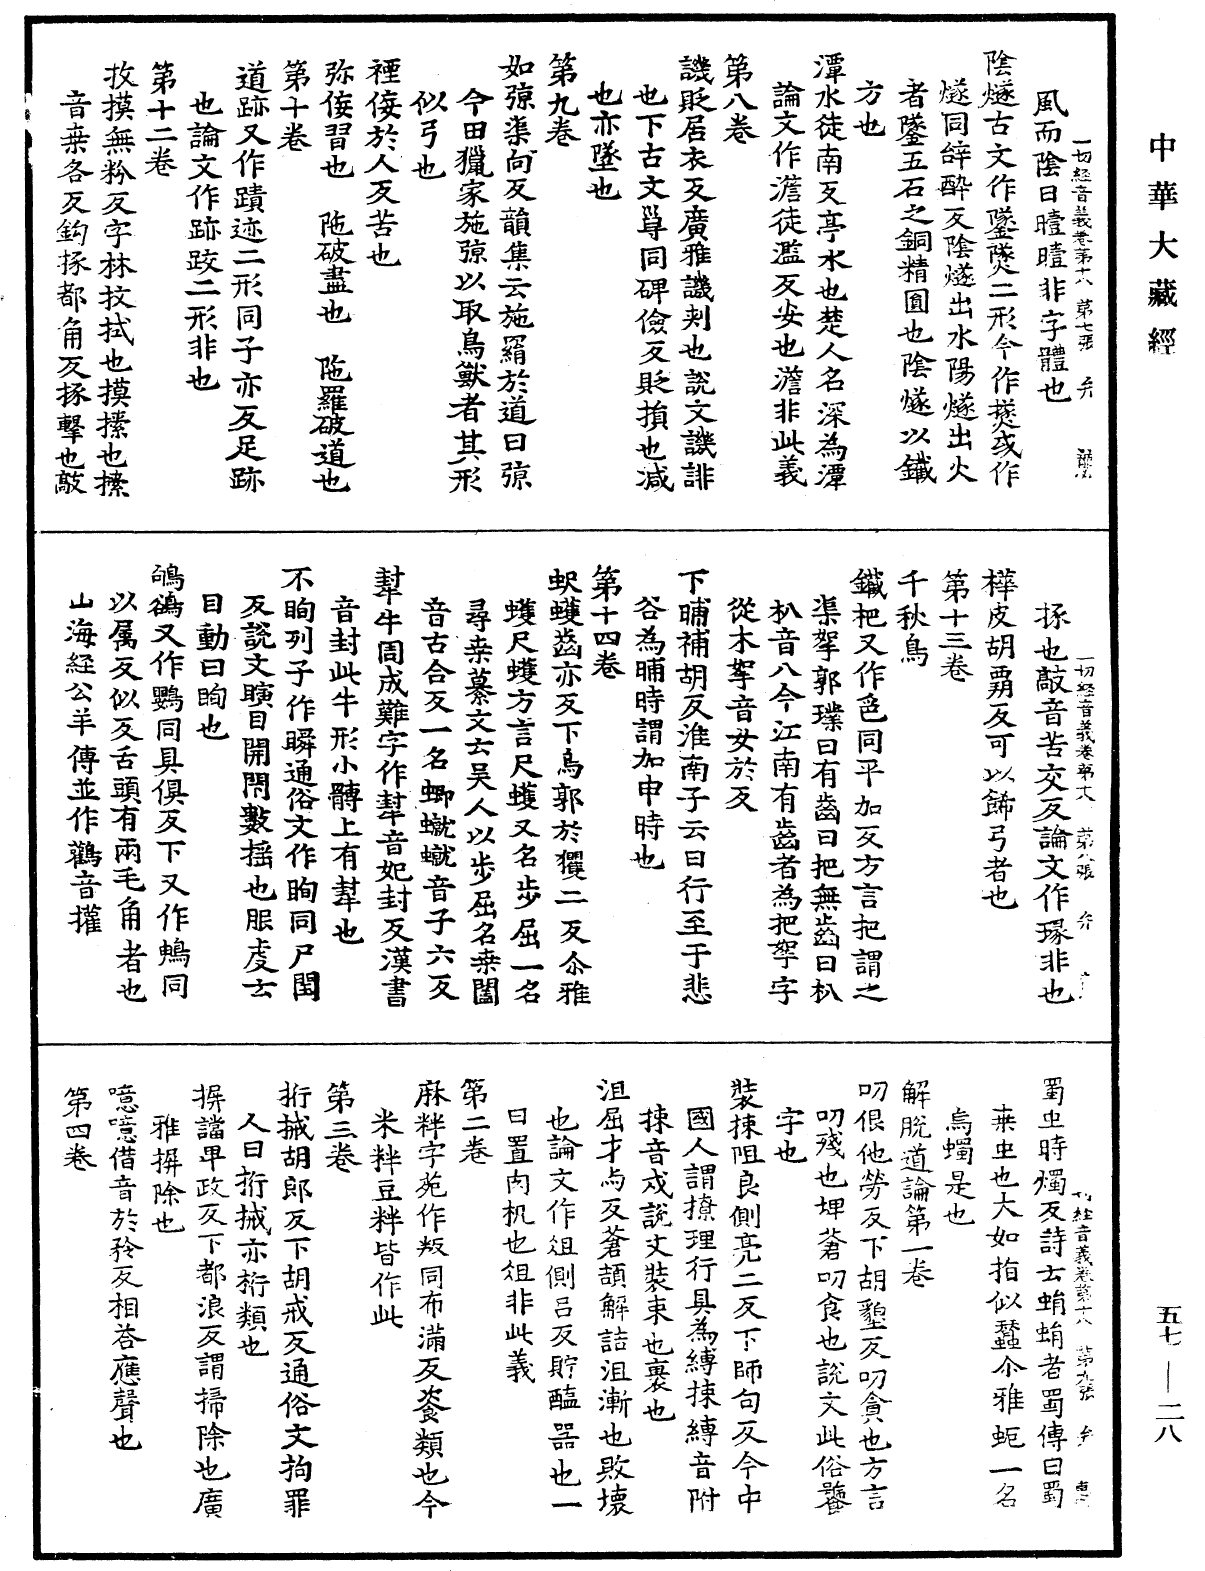 中華大藏經
一切經音義卷第十八 第七張 弁
風而陰曰曀曀非字體也
陰燧古文作鐆𤐫二形今作㷭或作
燧同辝醉反陰燧出水陽燧出火
者鐆五石之銅精圓也陰燧以鐵
方也
潭水徒南反亭水也楚人名深為潭
論文作澹徒濫反安也澹非此義
第八卷
譏貶居衣反廣雅譏刾也說文譏誹
也下古文㝵同碑儉反貶損也减
也亦墜也
第九卷
如弶渠向反韻集云施罥於道曰弶
今田獵家施弶以取鳥獸者其形
似弓也
禋侫於人反苦也
弥侫習也 陁破盡也 陁羅破道也
第十卷
道跡又作蹟迹二形同子亦反足跡
也論文作跡跤二形非也
第十二卷
抆摸無粉反字林抆拭也摸㨞也㨞
音桒各反鈎㧻都角反㧻擊也敲
一切經音義卷第十八 第八張 弁
㧻也敲音苦交反論文作瑑非也
樺皮胡霸反可以飾弓者也
第十三卷
千秋鳥
鐵把又作䶕同平加反方言把謂之
渠挐郭璞曰有齒曰把無齒曰朳
朳音八今江南有齒者為把挐字
從木挐音女於反
下晡補胡反淮南子云日行至于悲
谷為晡時謂加申時也
第十四卷
蚇蠖齒亦反下烏郭於玃二反尒雅
蠖尺蠖方言尺蠖又名步屈一名
尋桒纂文云吳人以步屈名桒闔
音古合反一名蝍䗘䗘音子六反
犎牛周成難字作犎音妃封反漢書
音封此牛形小髆上有犎也
不眴列子作瞬通俗文作眴同尸閏
反說文瞚目開閇數搖也服虔云
目動曰眴也
鴝鵒又作鸜同具俱反下又作鵒同
以属反似反舌頭有兩毛角者也
山海經公羊傳並作鸛音權
一切經音義卷第十八 第九張 弁
蜀虫時燭反詩云蜎蜎者蜀傳曰蜀
桒虫也大如指似蠶尒雅蚅一名
烏蠋是也
解脫道論第一卷
叨佷他勞反下胡墾反叨貪也方言
叨殘也埤蒼叨食也說文此俗饕
字也
裝揀阻良側亮二反下師句反今中
國人謂撩理行具為縛揀縛音附
揀音戍說文裝束也裹也
沮屈才与反蒼頡解詁沮漸也敗壞
也論文作俎側吕反貯醢器也一
曰置肉机也俎非此義
第二卷
麻粆字苑作粄同布滿反餈類也今
米粆豆粆皆作此
第三卷
桁械胡郎反下胡戒反通俗文拘罪
人曰桁械亦桁類也
摒譡卑政反下都浪反謂掃除也廣
雅摒除也
噫噫借音於矜反相荅應聲也
第四卷
五七—二八